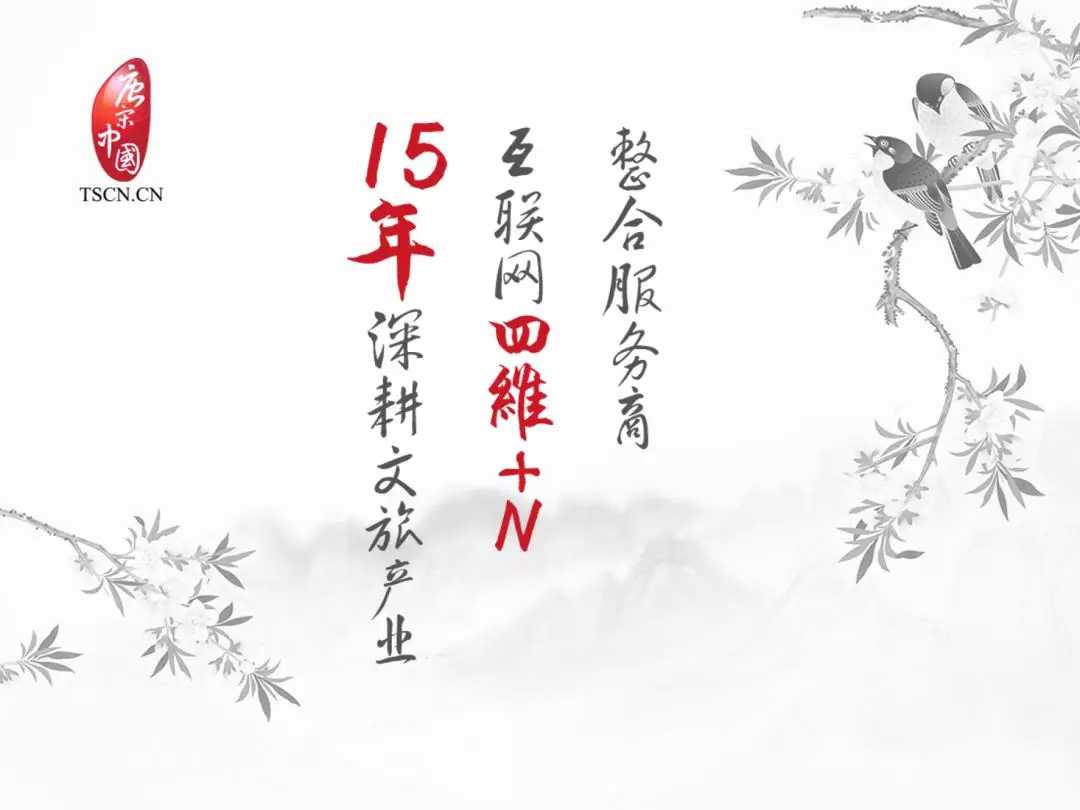 唐宋中國
TSCN.CN
15年深耕文旅产业
互联网四維+N
整合服务商